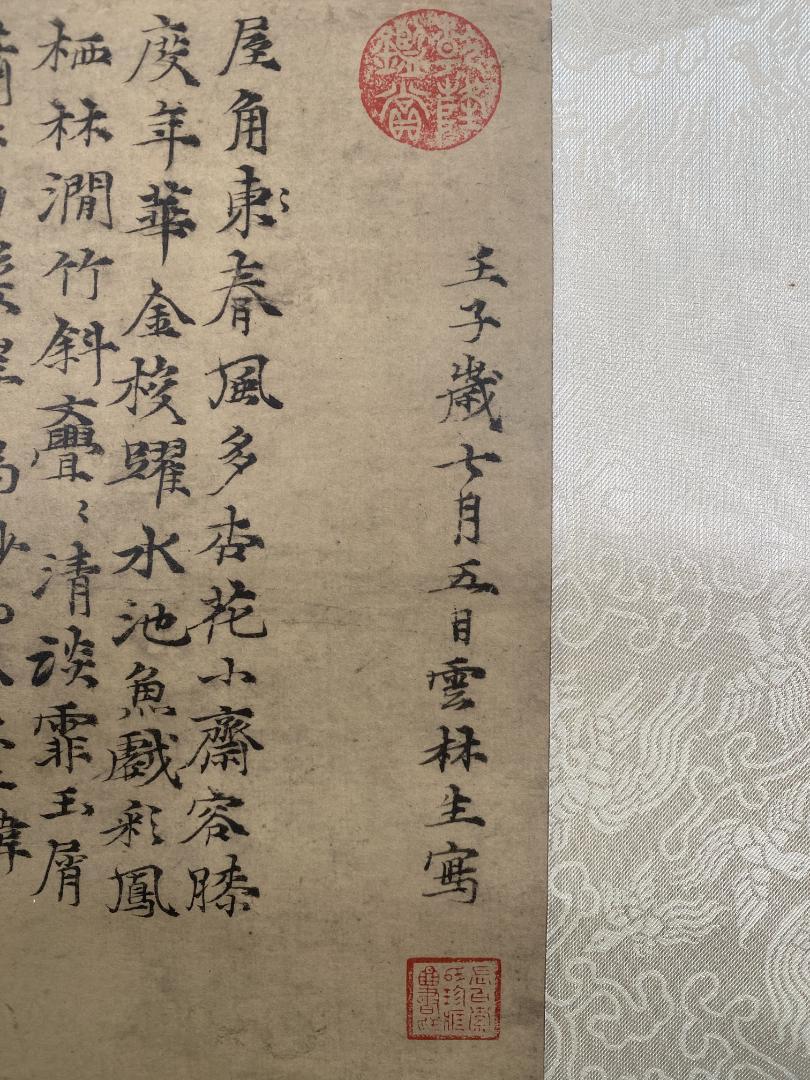 壬子歲七月五日雲林生寫
屋角東〻春風多杏花小齋容膝
度年華金梭躍水池魚戲彩鳳
栖林澗竹斜亹〻清談霏玉屑
乾隆鑑賞